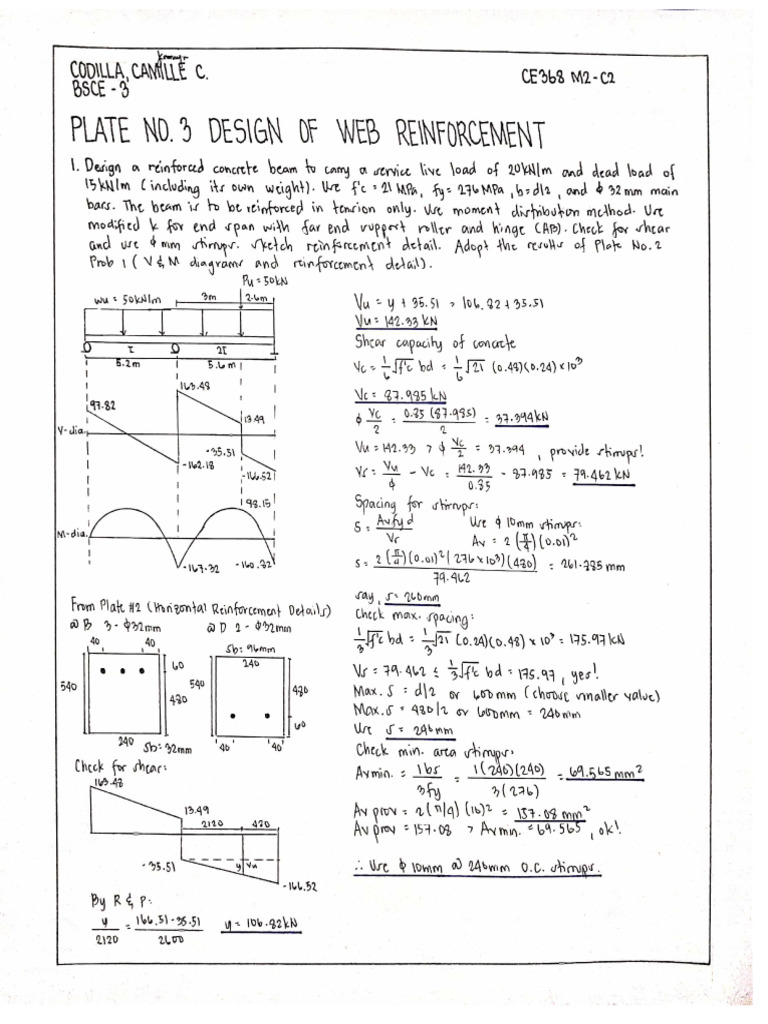 CODILLA, CAMILLE C.
BSCE - 3
CE368 M2-C2
PLATE NO. 3 DESIGN OF WEB REINFORCEMENT
1. Design a reinforced concrete beam to carry a service live load of 20kN/m and dead load of
15kN/m (including its own weight). Use f'c = 21 MPa, fy = 276 MPa, b=d/2, and ϕ 32mm main
bars. The beam is to be reinforced in tension only. Use moment distribution method. Use
modified k for end span with far end support roller and hinge (AB). Check for shear
and use ϕ mm stirrups. Sketch reinforcement detail. Adopt the results of Plate No. 2
Prob 1 (V & M diagrams and reinforcement detail).
Pu = 50kN
wu = 50kN/m
3m
2.6m
I
2I
5.2m
5.6m
163.48
97.82
13.49
V-dia.
-35.51
-162.18
-166.52
98.15
M-dia.
-167.32
-160.32
From Plate #2 (Horizontal Reinforcement Details)
@ B 3 - ϕ32mm
@ D 2 - ϕ32mm
40
40
Sb: 96mm
240
60
540
480
540
480
60
240
Sb: 32mm
40
40
Check for shear:
163.48
13.49
2120
480
-35.51
y
Vu
-166.52
By R & P:
y/2120 = 166.51-35.51/2600
y = 106.82kN
Vu = y + 35.51 = 106.82 + 35.51
Vu = 142.33 kN
Shear capacity of concrete
Vc = 1/6 √f'c bd = 1/6 √21 (0.48)(0.24) × 10³
Vc = 87.985 kN
ϕ Vc/2 = 0.85 (87.985)/2 = 37.394kN
Vu = 142.33 > ϕ Vc/2 = 37.394, provide stirrups!
Vs = Vu/ϕ - Vc = 142.33/0.85 - 87.985 = 79.462 kN
Spacing for stirrups:
S = Avfyd/Vs
Use ϕ 10mm stirrups:
Av = 2 (π/4)(0.01)²
S = 2(π/4)(0.01)²(276×10³)(480)/79.462 = 261.885 mm
say, s = 260mm
Check max. spacing:
1/3 √f'c bd = 1/3 √21 (0.24)(0.48) × 10³ = 175.97 kN
Vs = 79.462 ≤ 1/3 √f'c bd = 175.97, yes!
Max. S = d/2 or 600mm (choose smaller value)
Max. S = 480/2 or 600mm = 240mm
Use s = 240mm
Check min. area stirrups:
Avmin. = 1bs/3fy = 1(240)(240)/3(276) = 69.565 mm²
Av prov = 2(π/4)(10)² = 157.08 mm²
Av prov = 157.08 > Avmin. = 69.565, ok!
∴ Use ϕ 10mm @ 240mm O.C. stirrups.